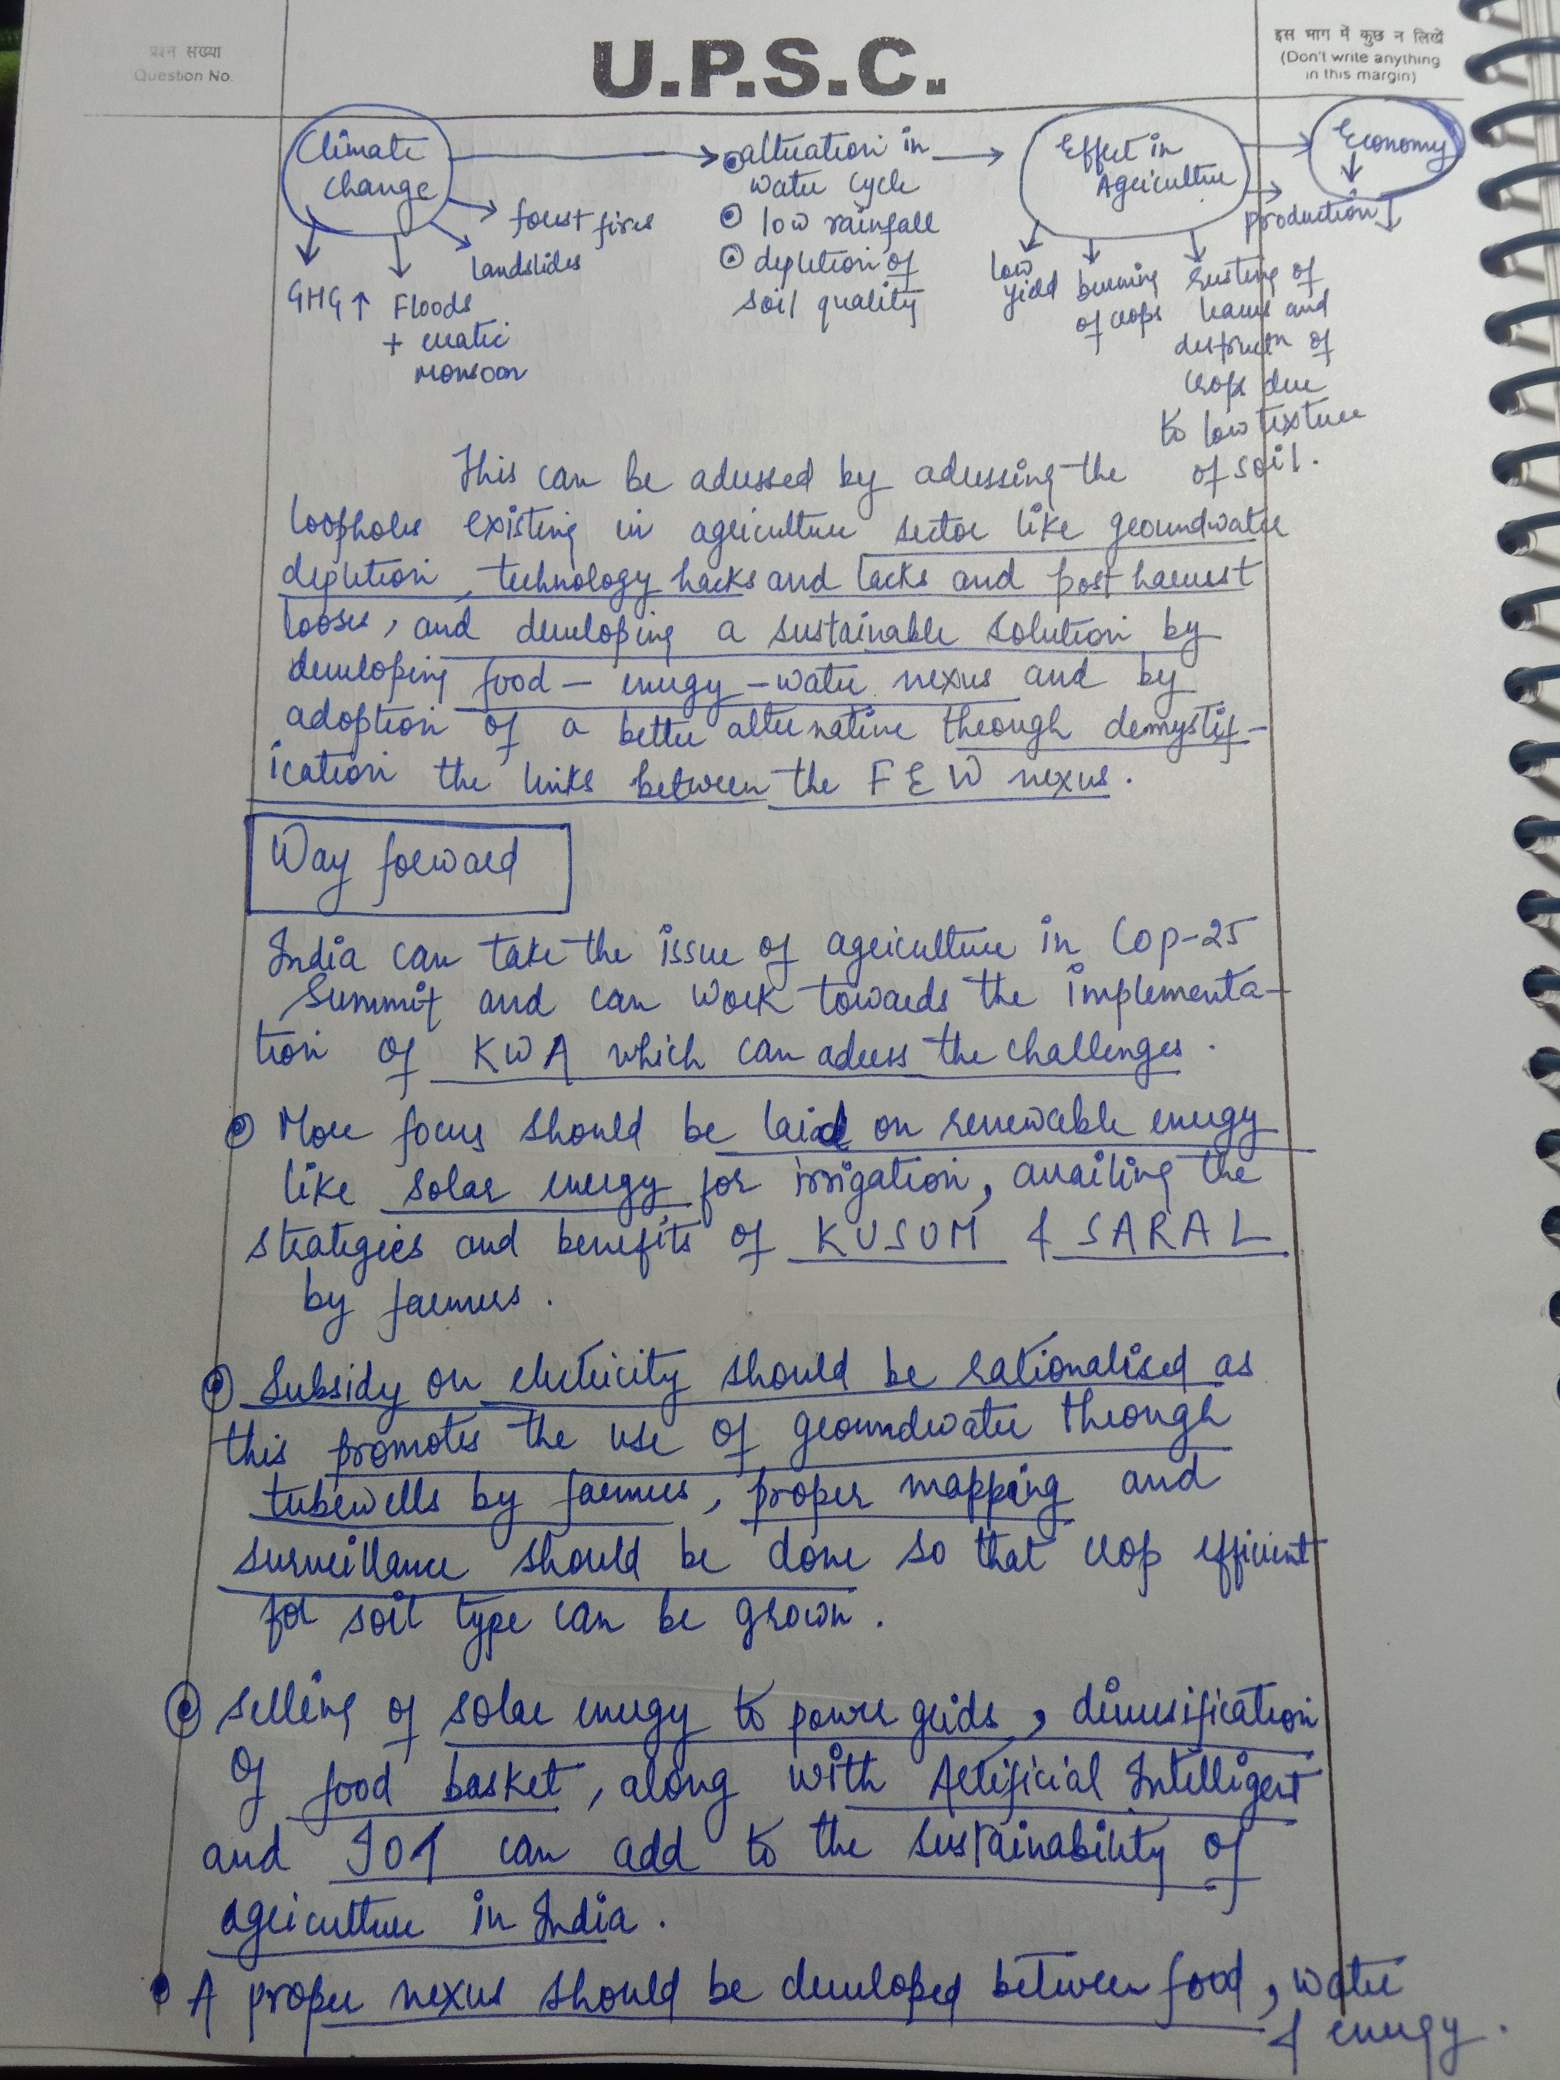 प्रश्न संख्या
Question No.
U.P.S.C.
इस भाग में कुछ न लिखें
(Don't write anything
in this margin)
Climate
change
GHG ↑
Floods
+ eratic
monsoon
landslides
forest fires
altreation in
water cycle
low rainfall
depletion of
soil quality
Effect in
Agriculture
low
yield
burning
of crops
Rusting of
leaves and
destruction of
crops due
to low texture
of soil.
Economy
production ↓
This can be adressed by adressing the
loopholes existing in agriculture sector like groundwater
depletion, technology hacks and lacks and post harvest
looses, and developing a sustainable solution by
developing food – energy – water nexus and by
adoption of a better alternative through demystif-
ication the links between the FEW nexus.
Way forward
India can take the issue of agriculture in Cop-25
Summit and can work towards the implementa-
tion of KWA which can adress the challenges.
More focus should be laid on renewable energy
like solar energy for irrigation, availing the
strategies and benefits of KUSUM & SARAL
by farmers.
Subsidy on electricity should be rationalised as
this promotes the use of groundwater through
tubewells by farmers, proper mapping and
surveillance should be done so that crop efficient
for soil type can be grown.
selling of solar energy to power grids, diversification
of food basket, along with Artificial Intelligent
and IOT can add to the sustainability of
agriculture in India.
A proper nexus should be developed between food, water
& energy.